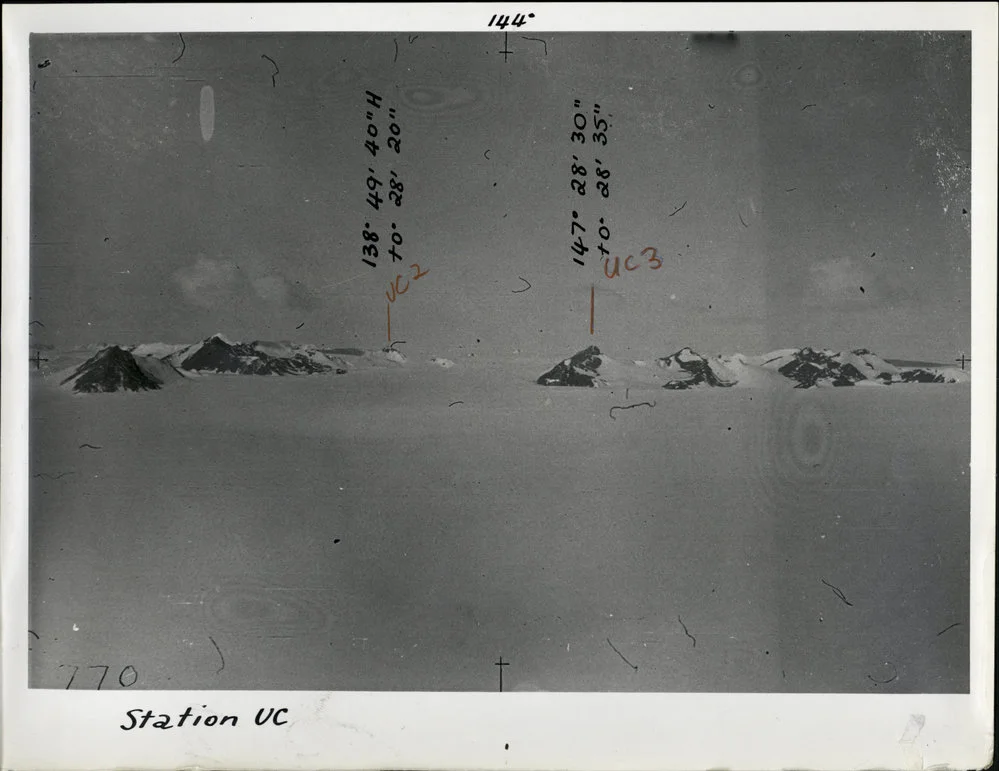 144°
138° 49' 40" H
+0° 28' 20"
UC2
147° 28' 30"
+0° 28' 35"
UC3
770
Station UC